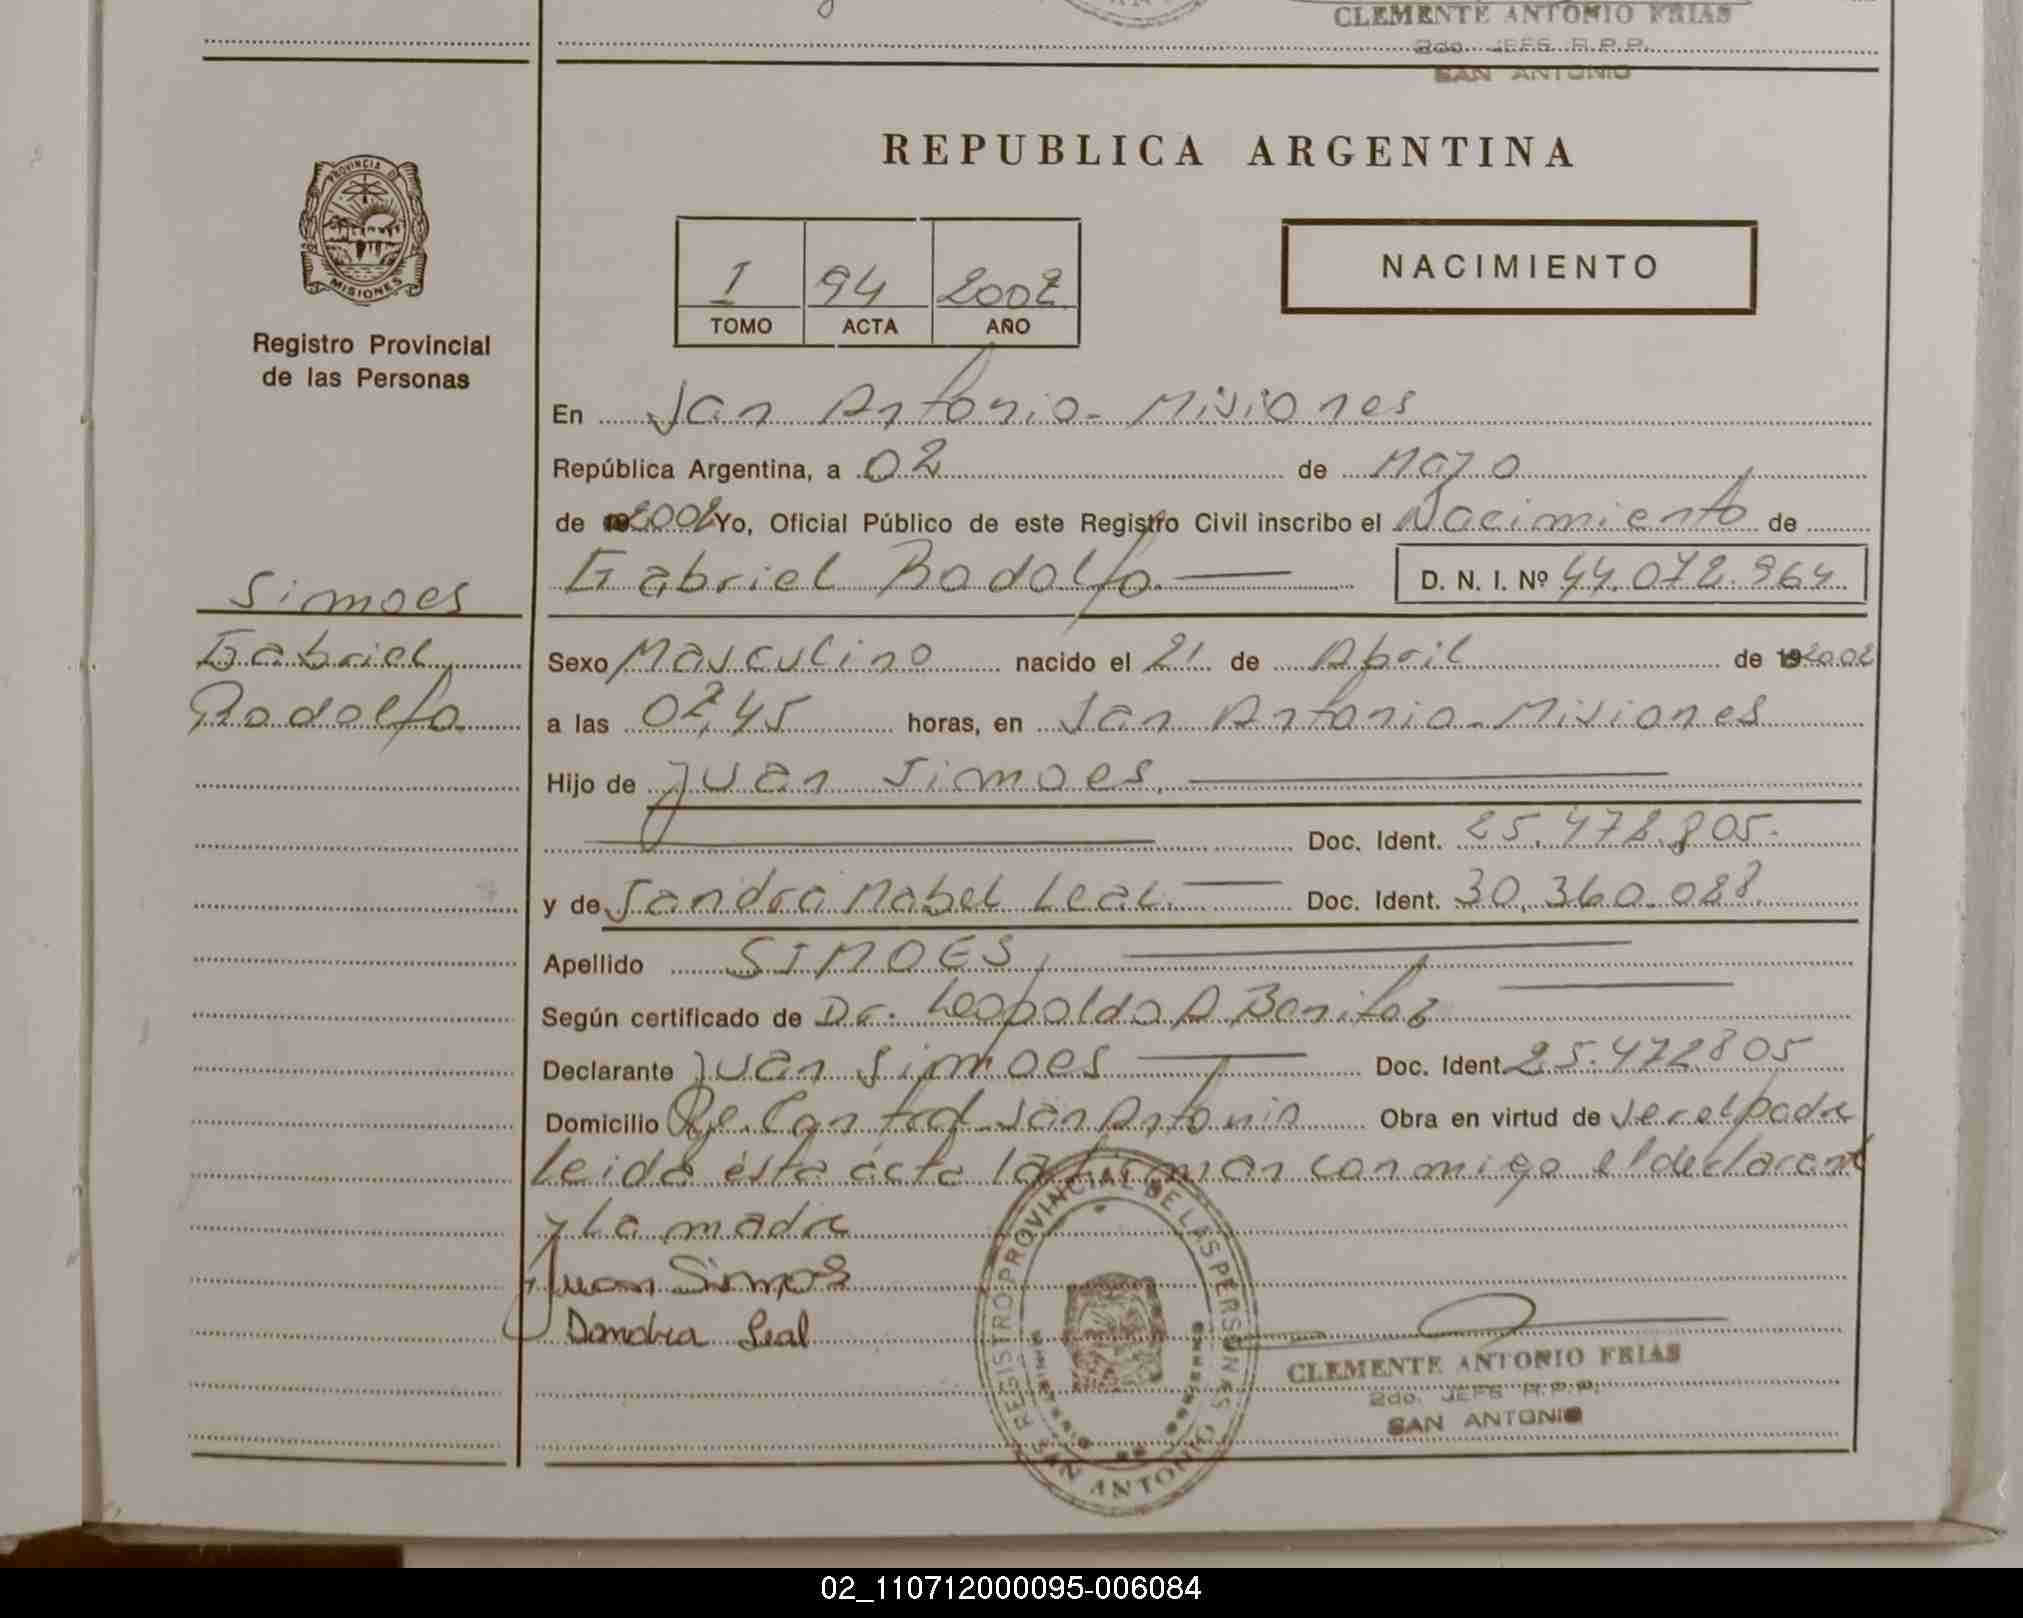 CLEMENTE ANTONIO FRIAS
2do. JEFE R.P.P.
SAN ANTONIO
REPUBLICA ARGENTINA
PROVINCIA DE
MISIONES
Registro Provincial
de las Personas
I 94 2002
TOMO ACTA AÑO
NACIMIENTO
En San Antonio - Misiones
República Argentina, a 02 de Mayo
de 2002 Yo, Oficial Público de este Registro Civil inscribo el Nacimiento de
Gabriel Rodolfo D. N. I. Nº 44.072.964
Simoes
Gabriel
Rodolfo
Sexo Masculino nacido el 21 de Abril de 19 2002
a las 02,45 horas, en San Antonio - Misiones
Hijo de Juan Simoes
Doc. Ident. 25.472.805.
y de Sandra Mabel Leal. Doc. Ident. 30.360.088
Apellido SIMOES
Según certificado de Dr. Leopoldo A Benitez
Declarante Juan Simoes Doc. Ident. 25.472805
Domicilio San Antonio Obra en virtud de ser el padre
Leida ésta acta la firman conmigo el declarant
y la madre
Juan Simoes
Sandra Leal
REGISTRO PROVINCIAL DE LAS PERSONAS
SAN ANTONIO
CLEMENTE ANTONIO FRIAS
2do. JEFE R.P.P.
SAN ANTONIO
02_110712000095-006084